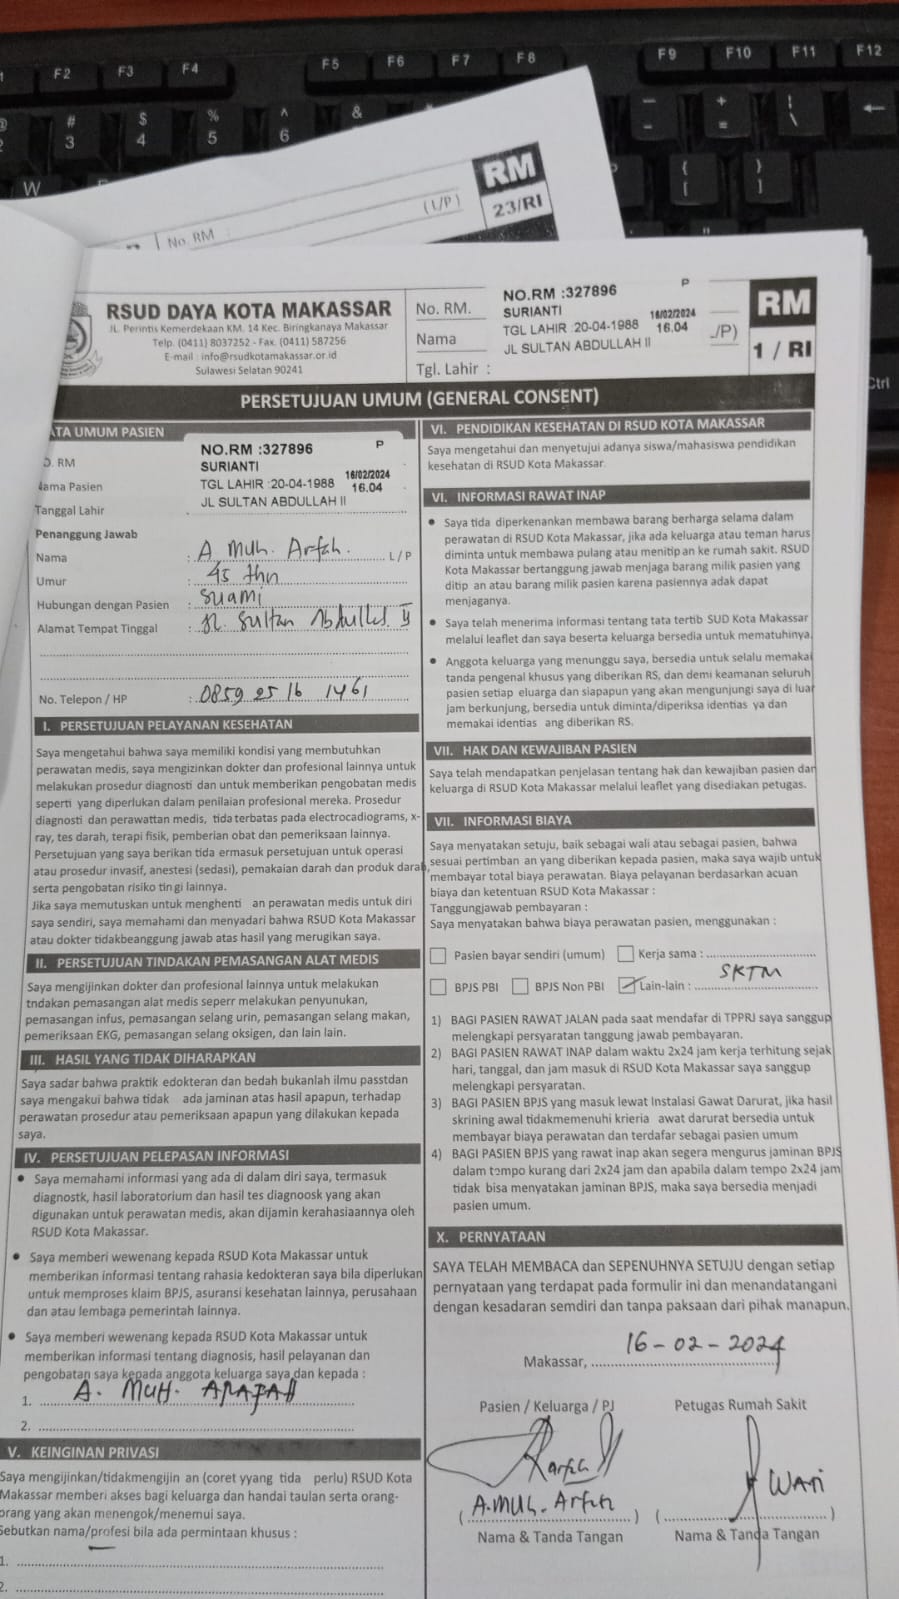 F2 F3 F4 F5 F6 F7 F8 F9 F10 F11 F12
# 3 $ 4 % 5 ^ 6 &
W
Ctrl
RM
23/RI
(L/P)
No. RM :
RSUD DAYA KOTA MAKASSAR
JL. Perintis Kemerdekaan KM. 14 Kec. Biringkanaya Makassar
Telp. (0411) 8037252 - Fax. (0411) 587256
E-mail : info@rsudkotamakassar.or.id
Sulawesi Selatan 90241
No. RM.
Nama
Tgl. Lahir :
NO.RM :327896 P
SURIANTI
TGL LAHIR :20-04-1988 16/02/2024 16.04
JL SULTAN ABDULLAH II
/P)
RM
1 / RI
PERSETUJUAN UMUM (GENERAL CONSENT)
ATA UMUM PASIEN
O. RM
Nama Pasien
Tanggal Lahir
NO.RM :327896 P
SURIANTI
TGL LAHIR :20-04-1988 16/02/2024 16.04
JL SULTAN ABDULLAH II
Penanggung Jawab
Nama : A Muh. Arfah. L / P
Umur : 45 thn
Hubungan dengan Pasien : Suami
Alamat Tempat Tinggal : Jl. Sultan Abdullah II
No. Telepon / HP : 0859 25 16 1461
I. PERSETUJUAN PELAYANAN KESEHATAN
Saya mengetahui bahwa saya memiliki kondisi yang membutuhkan
perawatan medis, saya mengizinkan dokter dan profesional lainnya untuk
melakukan prosedur diagnosti dan untuk memberikan pengobatan medis
seperti yang diperlukan dalam penilaian profesional mereka. Prosedur
diagnosti dan perawattan medis, tida terbatas pada electrocadiograms, x-
ray, tes darah, terapi fisik, pemberian obat dan pemeriksaan lainnya.
Persetujuan yang saya berikan tida ermasuk persetujuan untuk operasi
atau prosedur invasif, anestesi (sedasi), pemakaian darah dan produk darah,
serta pengobatan risiko tin gi lainnya.
Jika saya memutuskan untuk menghenti an perawatan medis untuk diri
saya sendiri, saya memahami dan menyadari bahwa RSUD Kota Makassar
atau dokter tidakbeanggung jawab atas hasil yang merugikan saya.
II. PERSETUJUAN TINDAKAN PEMASANGAN ALAT MEDIS
Saya mengijinkan dokter dan profesional lainnya untuk melakukan
tndakan pemasangan alat medis seperr melakukan penyunukan,
pemasangan infus, pemasangan selang urin, pemasangan selang makan,
pemeriksaan EKG, pemasangan selang oksigen, dan lain lain.
III. HASIL YANG TIDAK DIHARAPKAN
Saya sadar bahwa praktik edokteran dan bedah bukanlah ilmu passtdan
saya mengakui bahwa tidak ada jaminan atas hasil apapun, terhadap
perawatan prosedur atau pemeriksaan apapun yang dilakukan kepada
saya.
IV. PERSETUJUAN PELEPASAN INFORMASI
• Saya memahami informasi yang ada di dalam diri saya, termasuk
diagnostk, hasil laboratorium dan hasil tes diagnoosk yang akan
digunakan untuk perawatan medis, akan dijamin kerahasiaannya oleh
RSUD Kota Makassar.
• Saya memberi wewenang kepada RSUD Kota Makassar untuk
memberikan informasi tentang rahasia kedokteran saya bila diperlukan
untuk memproses klaim BPJS, asuransi kesehatan lainnya, perusahaan
dan atau lembaga pemerintah lainnya.
• Saya memberi wewenang kepada RSUD Kota Makassar untuk
memberikan informasi tentang diagnosis, hasil pelayanan dan
pengobatan saya kepada anggota keluarga saya dan kepada :
1. A. MUH. ARAFAH
2.
V. KEINGINAN PRIVASI
Saya mengijinkan/tidakmengijin an (coret yyang tida perlu) RSUD Kota
Makassar memberi akses bagi keluarga dan handai taulan serta orang-
orang yang akan menengok/menemui saya.
Sebutkan nama/profesi bila ada permintaan khusus :
1.
2.
VI. PENDIDIKAN KESEHATAN DI RSUD KOTA MAKASSAR
Saya mengetahui dan menyetujui adanya siswa/mahasiswa pendidikan
kesehatan di RSUD Kota Makassar.
VI. INFORMASI RAWAT INAP
• Saya tida diperkenankan membawa barang berharga selama dalam
perawatan di RSUD Kota Makassar, jika ada keluarga atau teman harus
diminta untuk membawa pulang atau menitip an ke rumah sakit. RSUD
Kota Makassar bertanggung jawab menjaga barang milik pasien yang
ditip an atau barang milik pasien karena pasiennya adak dapat
menjaganya.
• Saya telah menerima informasi tentang tata tertib SUD Kota Makassar
melalui leaflet dan saya beserta keluarga bersedia untuk mematuhinya.
• Anggota keluarga yang menunggu saya, bersedia untuk selalu memakai
tanda pengenal khusus yang diberikan RS, dan demi keamanan seluruh
pasien setiap eluarga dan siapapun yang akan mengunjungi saya di luar
jam berkunjung, bersedia untuk diminta/diperiksa identias ya dan
memakai identias ang diberikan RS.
VII. HAK DAN KEWAJIBAN PASIEN
Saya telah mendapatkan penjelasan tentang hak dan kewajiban pasien dan
keluarga di RSUD Kota Makassar melalui leaflet yang disediakan petugas.
VII. INFORMASI BIAYA
Saya menyatakan setuju, baik sebagai wali atau sebagai pasien, bahwa
sesuai pertimban an yang diberikan kepada pasien, maka saya wajib untuk
membayar total biaya perawatan. Biaya pelayanan berdasarkan acuan
biaya dan ketentuan RSUD Kota Makassar :
Tanggungjawab pembayaran :
Saya menyatakan bahwa biaya perawatan pasien, menggunakan :
Pasien bayar sendiri (umum) Kerja sama :
BPJS PBI BPJS Non PBI Lain-lain : SKTM
1) BAGI PASIEN RAWAT JALAN pada saat mendafar di TPPRJ saya sanggup
melengkapi persyaratan tanggung jawab pembayaran.
2) BAGI PASIEN RAWAT INAP dalam waktu 2x24 jam kerja terhitung sejak
hari, tanggal, dan jam masuk di RSUD Kota Makassar saya sanggup
melengkapi persyaratan.
3) BAGI PASIEN BPJS yang masuk lewat Instalasi Gawat Darurat, jika hasil
skrining awal tidakmemenuhi krieria awat darurat bersedia untuk
membayar biaya perawatan dan terdafar sebagai pasien umum
4) BAGI PASIEN BPJS yang rawat inap akan segera mengurus jaminan BPJS
dalam tempo kurang dari 2x24 jam dan apabila dalam tempo 2x24 jam
tidak bisa menyatakan jaminan BPJS, maka saya bersedia menjadi
pasien umum.
X. PERNYATAAN
SAYA TELAH MEMBACA dan SEPENUHNYA SETUJU dengan setiap
pernyataan yang terdapat pada formulir ini dan menandatangani
dengan kesadaran semdiri dan tanpa paksaan dari pihak manapun.
Makassar, 16-02-2024
Pasien / Keluarga / PJ Petugas Rumah Sakit
Arfah WATI
( A.MUH. Arfah ) ( )
Nama & Tanda Tangan Nama & Tanda Tangan